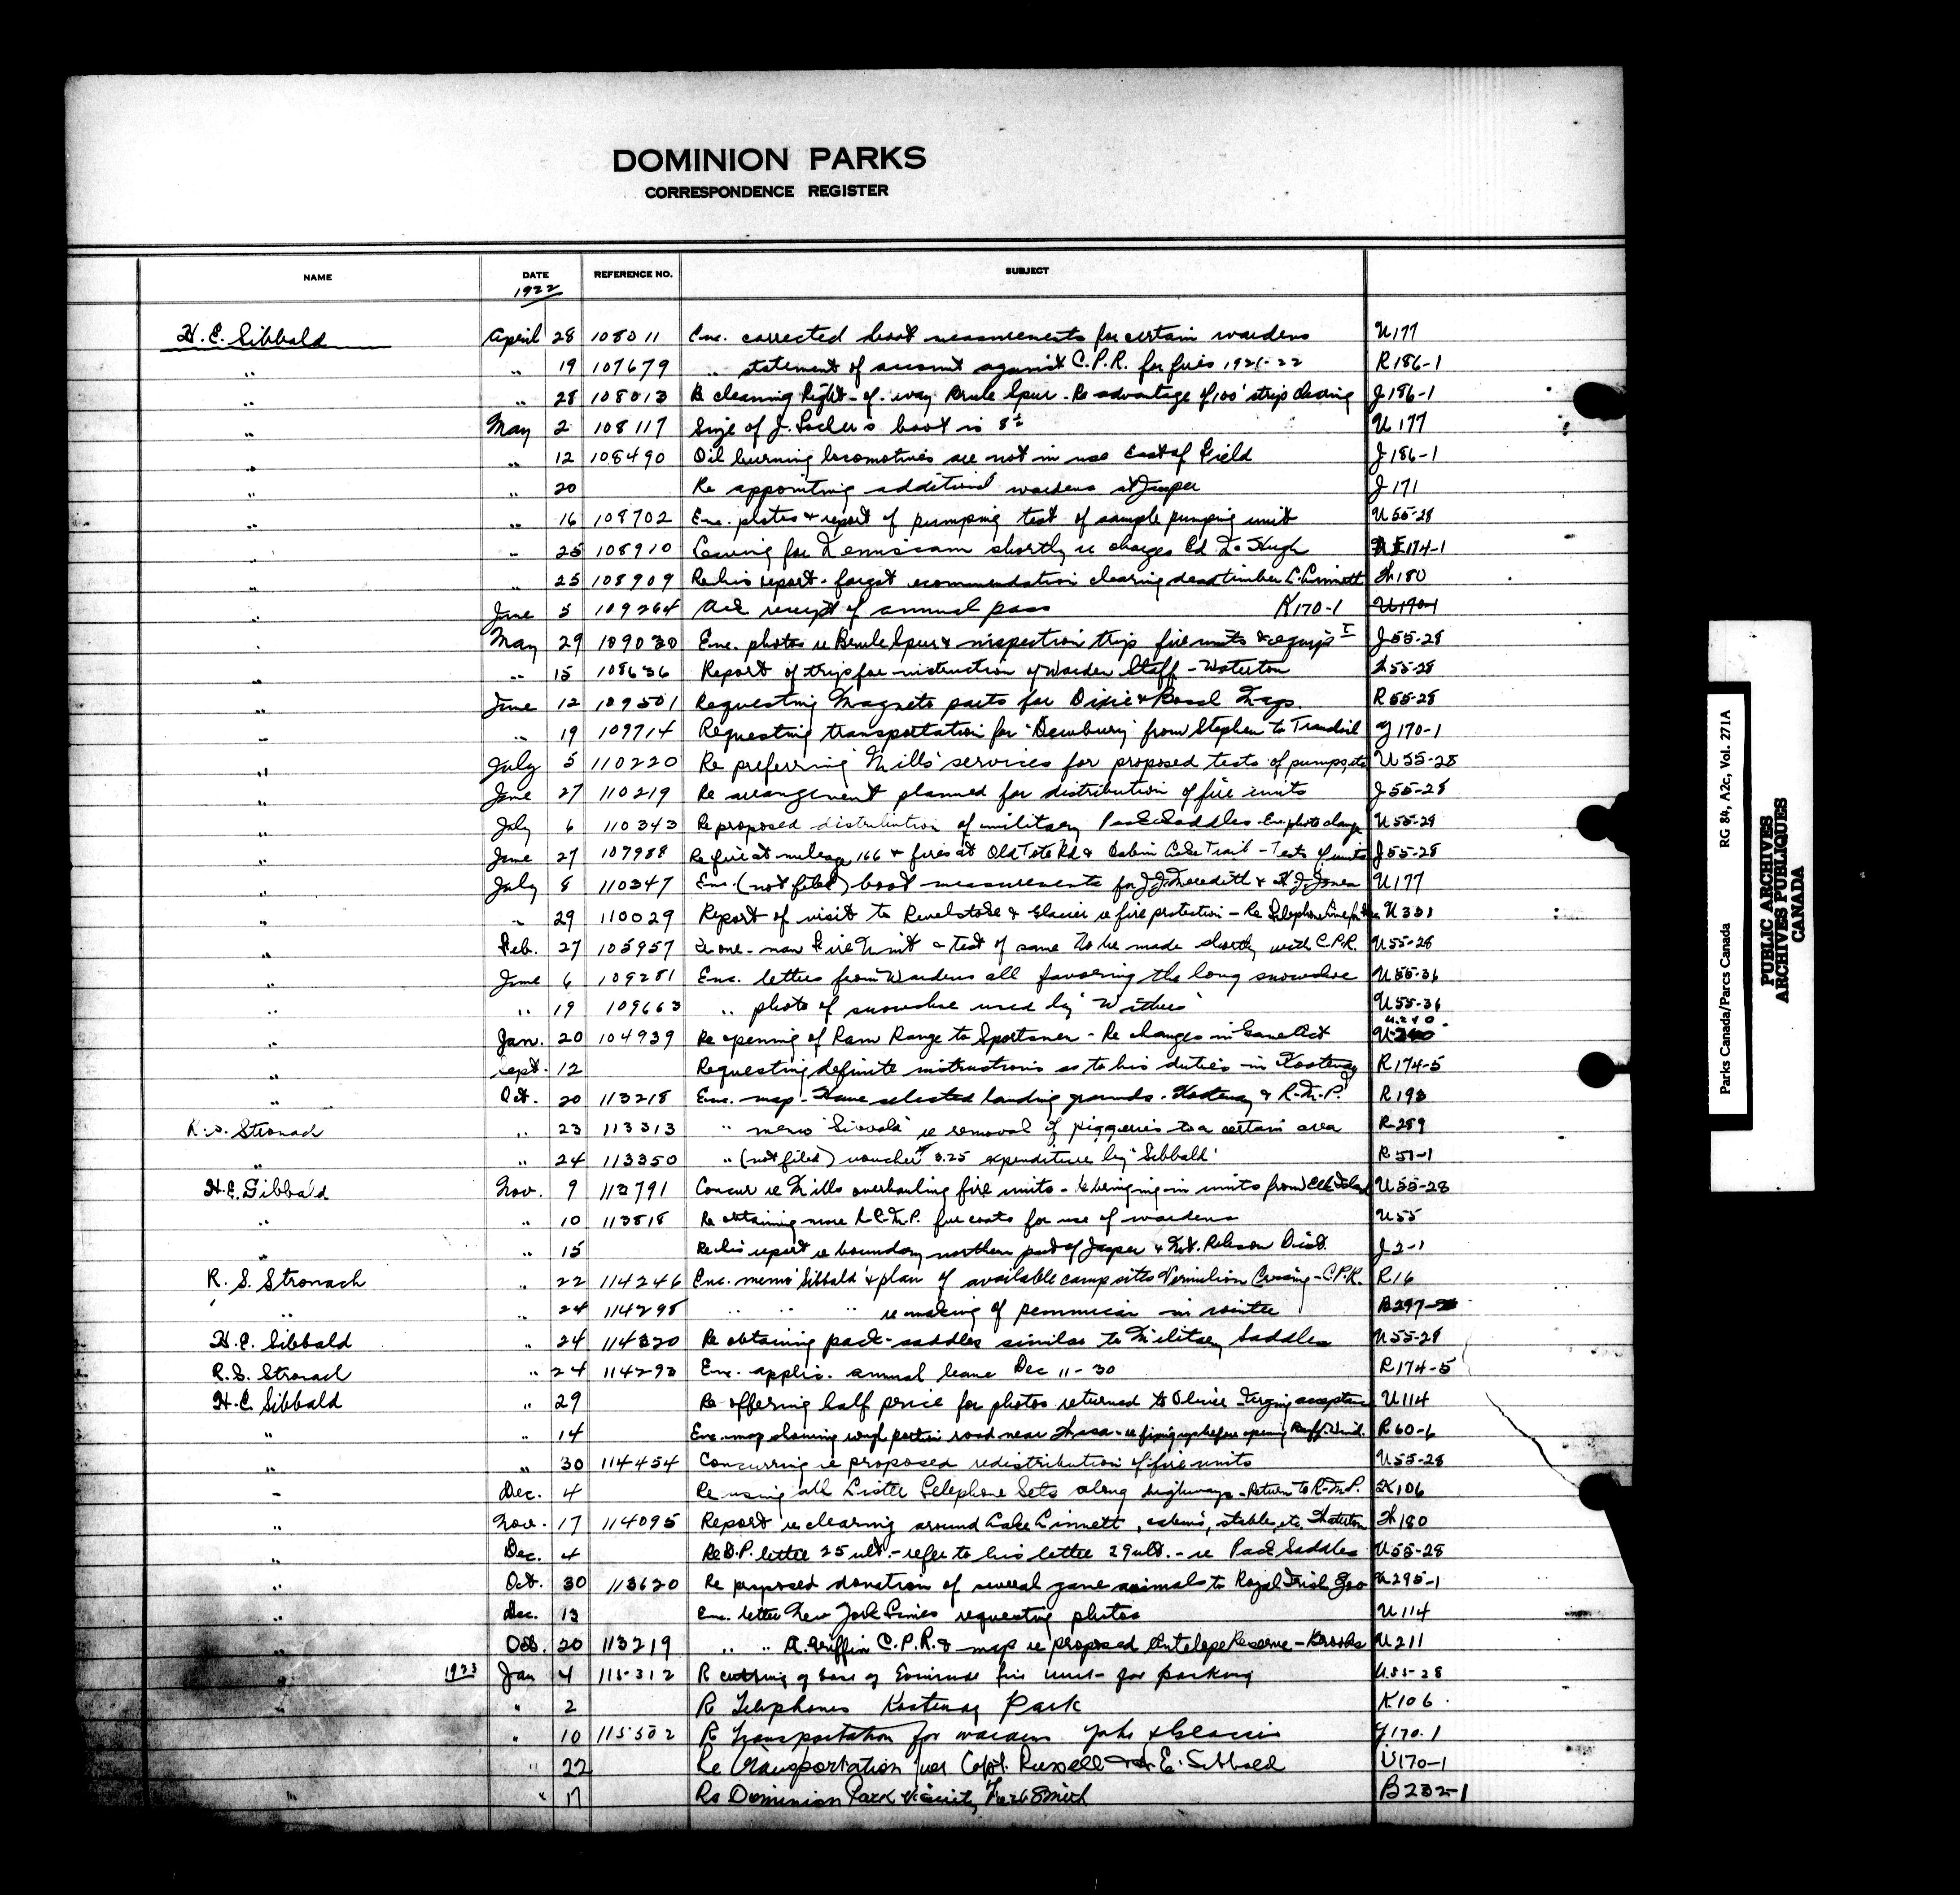 DOMINION PARKS
CORRESPONDENCE REGISTER
NAME DATE REFERENCE NO. SUBJECT
1922
H. E. Sibbald April 28 108011 Enc. corrected boot measurements for certain wardens U177
" " 19 107679 " statement of account against C.P.R. for fires 1921-22 R186-1
" " 28 108013 Re clearing Right-of-way Brule Spur - Re advantage of 100' strip clearing J186-1
" May 2 108117 Size of J. boot is 8½ U177
" " 12 108490 Oil burning locomotives are not in use East of Field J186-1
" " 20 Re appointing additional wardens at Jasper J171
" " 16 108702 Enc. photos & report of pumping test of sample pumping unit U55-28
" " 25 108910 Leaving for Nemiscam shortly re charges Ed 174-1
" " 25 108909 Re his report - forgot recommendation clearing dead timber L. Linnett W180
" June 5 109264 Ack receipt of annual pass K170-1 U170-1
" May 29 109030 Enc. photos re Brule Spur & inspection trip fire units & equip't J55-28
" " 15 108636 Report of trip for instruction of Warden Staff - Waterton W55-28
" June 12 109501 Requesting Magneto parts for Dixie & Bosch Mags. R55-28
" " 19 109714 Requesting transportation for "Dewbury" from Stephen to Y170-1
" July 5 110220 Re preferring Mills' services for proposed tests of pumps, etc U55-28
" June 27 110219 Re arrangement planned for distribution of fire units J55-28
" July 6 110343 Re proposed distribution of military Pack Saddles - Enc photo U55-28
" June 27 109988 Re fire at mileage 166 & fires at Old Tote Rd & Cabin Lake Trail - Tests of units J55-28
" July 8 110347 Enc. (not filed) boot measurements for J.J. Meredith & H.J. Jones U177
" " 29 110029 Report of visit to Revelstoke & Glacier re fire protection - Re Telephone Line U331
" Feb. 27 105957 Re one-man Fire Unit & test of same to be made shortly with C.P.R. U55-28
" June 6 109281 Enc. letters from Wardens all favoring the long snowshoe U55-36
" " 19 109663 " photo of snowshoe used by "Withers" U55-36
" Jan. 20 104939 Re opening of Ram Range to Sportsmen - Re changes in Game Act U210
" Sept. 12 Requesting definite instructions as to his duties in Kootenay R174-5
" Oct. 20 113218 Enc. map - Have selected landing grounds - Kootenay & R.M.P. R193
R.S. Stronach " 23 113313 " memo "Sibbald" re removal of piggeries to a certain area R259
" " 24 113350 " (not filed) voucher 3.25 expenditure by "Sibbald" R51-1
H.E. Sibbald Nov. 9 113791 Concur re Mills overhauling fire units - Re bringing in units from Elk Island U55-28
" " 10 113818 Re obtaining more R.C.M.P. fur coats for use of wardens U55
" " 15 Re his report re boundary northern part of Jasper & Mt. Robson Dist. J2-1
R. S. Stronach " 22 114246 Enc. memo "Sibbald" & plan of available camp sites Vermilion Crossing - C.P.R. R16
" " 24 114298 " " " re making of pemmican in winter B297-2
H.E. Sibbald " 24 114320 Re obtaining pack-saddles similar to Military Saddles U55-28
R.S. Stronach " 24 114293 Enc. applic. annual leave Dec 11-30 R174-5
H.E. Sibbald " 29 Re offering half price for photos returned to Oliver - Urging acceptance U114
" " 14 Enc. map showing rough part in road near - re fixing up before opening Banff-Wind. R60-6
" " 30 114454 Concurring re proposed redistribution of fire units U55-28
" Dec. 4 Re using all Lister Telephone Sets along highways - Return to R.M.P. K106
" Nov. 17 114095 Report re clearing around Lake Linnett, cabins, stables, etc. Waterton W180
" Dec. 4 Re D.P. letter 25 ult. - refer to his letter 29 ult. - re Pack Saddles U55-28
" Oct. 30 113620 Re proposed donation of several game animals to Royal Irish Zoo U295-1
" Dec. 13 Enc. letter New York Times requesting photos U114
" Oct. 20 113219 " " A. Griffin C.P.R. & map re proposed Antelope Reserve - Brooks U211
" 1923 Jan 4 115312 R cutting of base of Evinrude fire unit - for packing U55-28
" " 2 R Telephones Kootenay Park K106
" " 10 115502 R Transportation for wardens Yoho & Glacier Y170-1
" " 22 Re Transportation over Capt. Russell H.E. Sibbald U170-1
" " 17 Re Dominion Park Vicinity Fort Smith B232-1
Parks Canada/Parcs Canada RG 84, A2c, Vol. 271A
PUBLIC ARCHIVES
ARCHIVES PUBLIQUES
CANADA